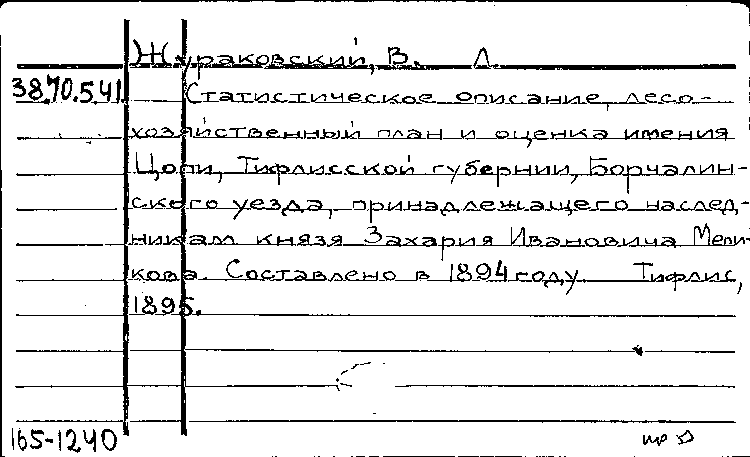 Жураковский, В. Л.
38.70.5.41. Статистическое описание, лесо-
хозяйственный план и оценка имения
Цопи, Тифлисской губернии, Борчалин-
ского уезда, принадлежащего наслед-
никам князя Захария Ивановича Мели-
кова. Составлено в 1894 году. Тифлис,
1895.
165-1240